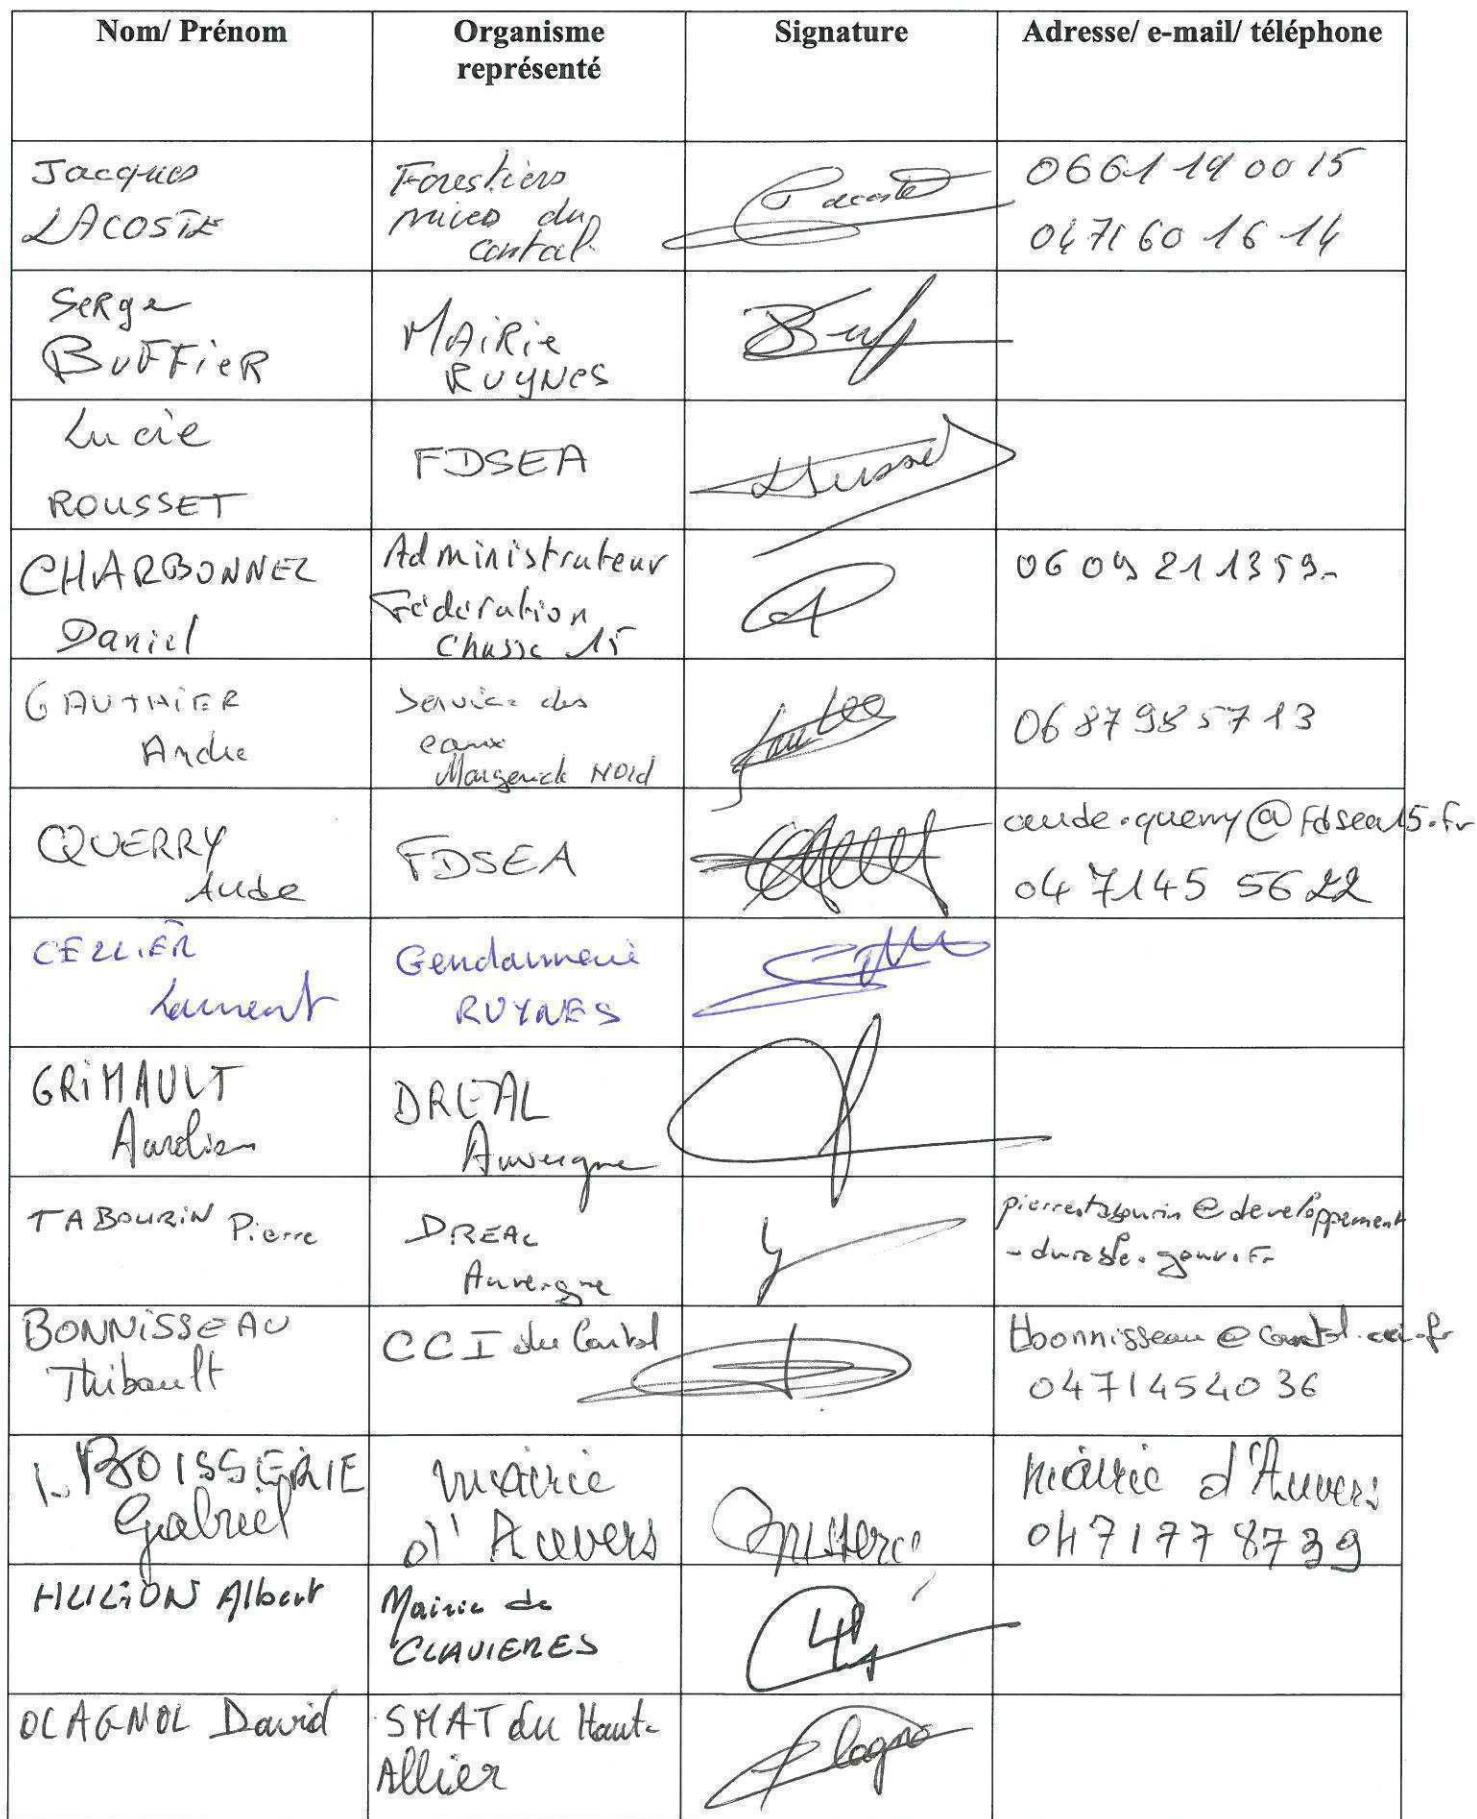 Nom/ Prénom
Organisme
représenté
Signature
Adresse/ e-mail/ téléphone
Jacques
LACOSTE
Forestiers
du
cantal
Lacoste
0661 19 00 15
0471 60 16 14
Serge
BUFFieR
MAiRie
RUYNes
Lucie
ROUSSET
FDSEA
CHARBONNEL
Daniel
Administrateur
Fédération
Chasse 15
06 09 21 13 59
GAUTHIER
Andre
Service des
eaux
Margeride Nord
06 87 98 57 13
QUERRY
Aude
FDSEA
aude.querry@fdsea15.fr
04 71 45 56 22
CELLIER
Laurent
Gendarmerie
RUYNES
GRIMAULT
Aurélien
DREAL
Auvergne
TABOURIN Pierre
DREAL
Auvergne
pierre.tabourin@developpement
-durable.gouv.fr
BONNISSEAU
Thibault
CCI du Cantal
tbonnisseau@cantal.cci.fr
0471454036
BOISSERIE
Gabriel
mairie
d'Auvers
mairie d'Auvers
0471778739
HUGON Albert
Mairie de
CLAVIERES
OLAGNOL David
SMAT du Haut-
Allier